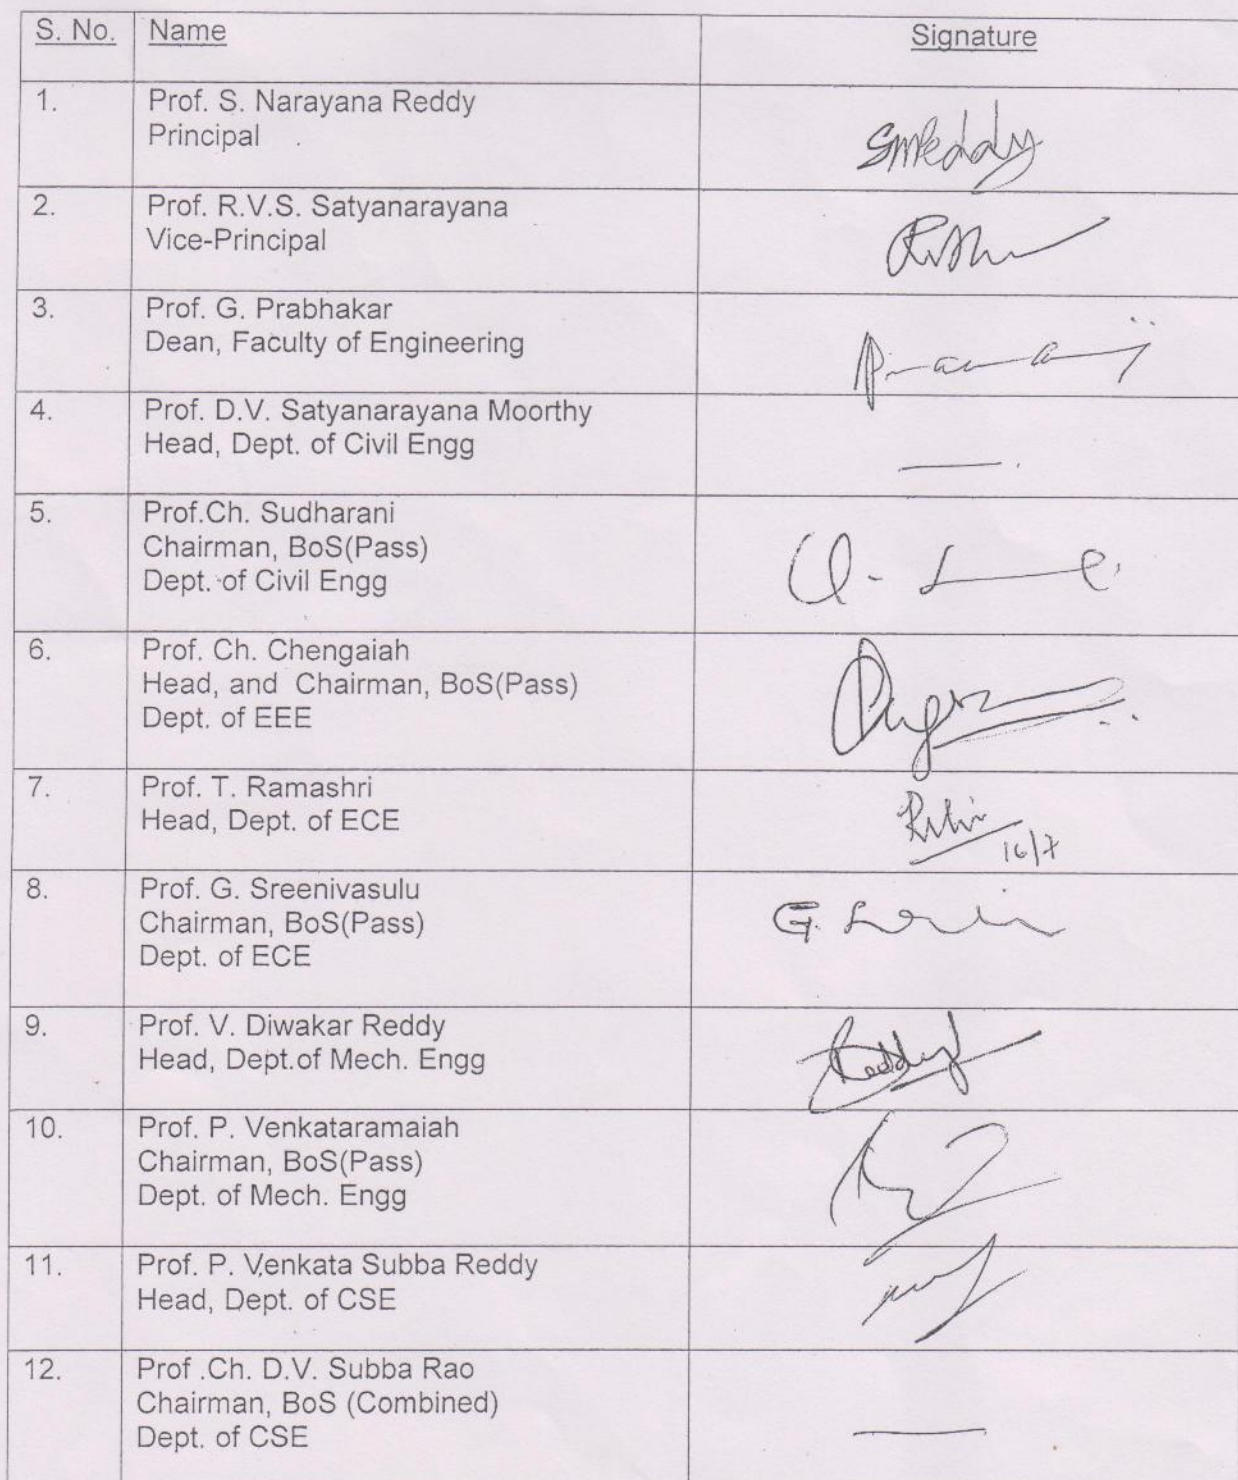 S. No. Name Signature
1. Prof. S. Narayana Reddy
Principal
SNReddy
2. Prof. R.V.S. Satyanarayana
Vice-Principal
3. Prof. G. Prabhakar
Dean, Faculty of Engineering
4. Prof. D.V. Satyanarayana Moorthy
Head, Dept. of Civil Engg
5. Prof.Ch. Sudharani
Chairman, BoS(Pass)
Dept. of Civil Engg
6. Prof. Ch. Chengaiah
Head, and Chairman, BoS(Pass)
Dept. of EEE
7. Prof. T. Ramashri
Head, Dept. of ECE
16/7
8. Prof. G. Sreenivasulu
Chairman, BoS(Pass)
Dept. of ECE
G.
9. Prof. V. Diwakar Reddy
Head, Dept.of Mech. Engg
Reddy
10. Prof. P. Venkataramaiah
Chairman, BoS(Pass)
Dept. of Mech. Engg
11. Prof. P. Venkata Subba Reddy
Head, Dept. of CSE
12. Prof .Ch. D.V. Subba Rao
Chairman, BoS (Combined)
Dept. of CSE